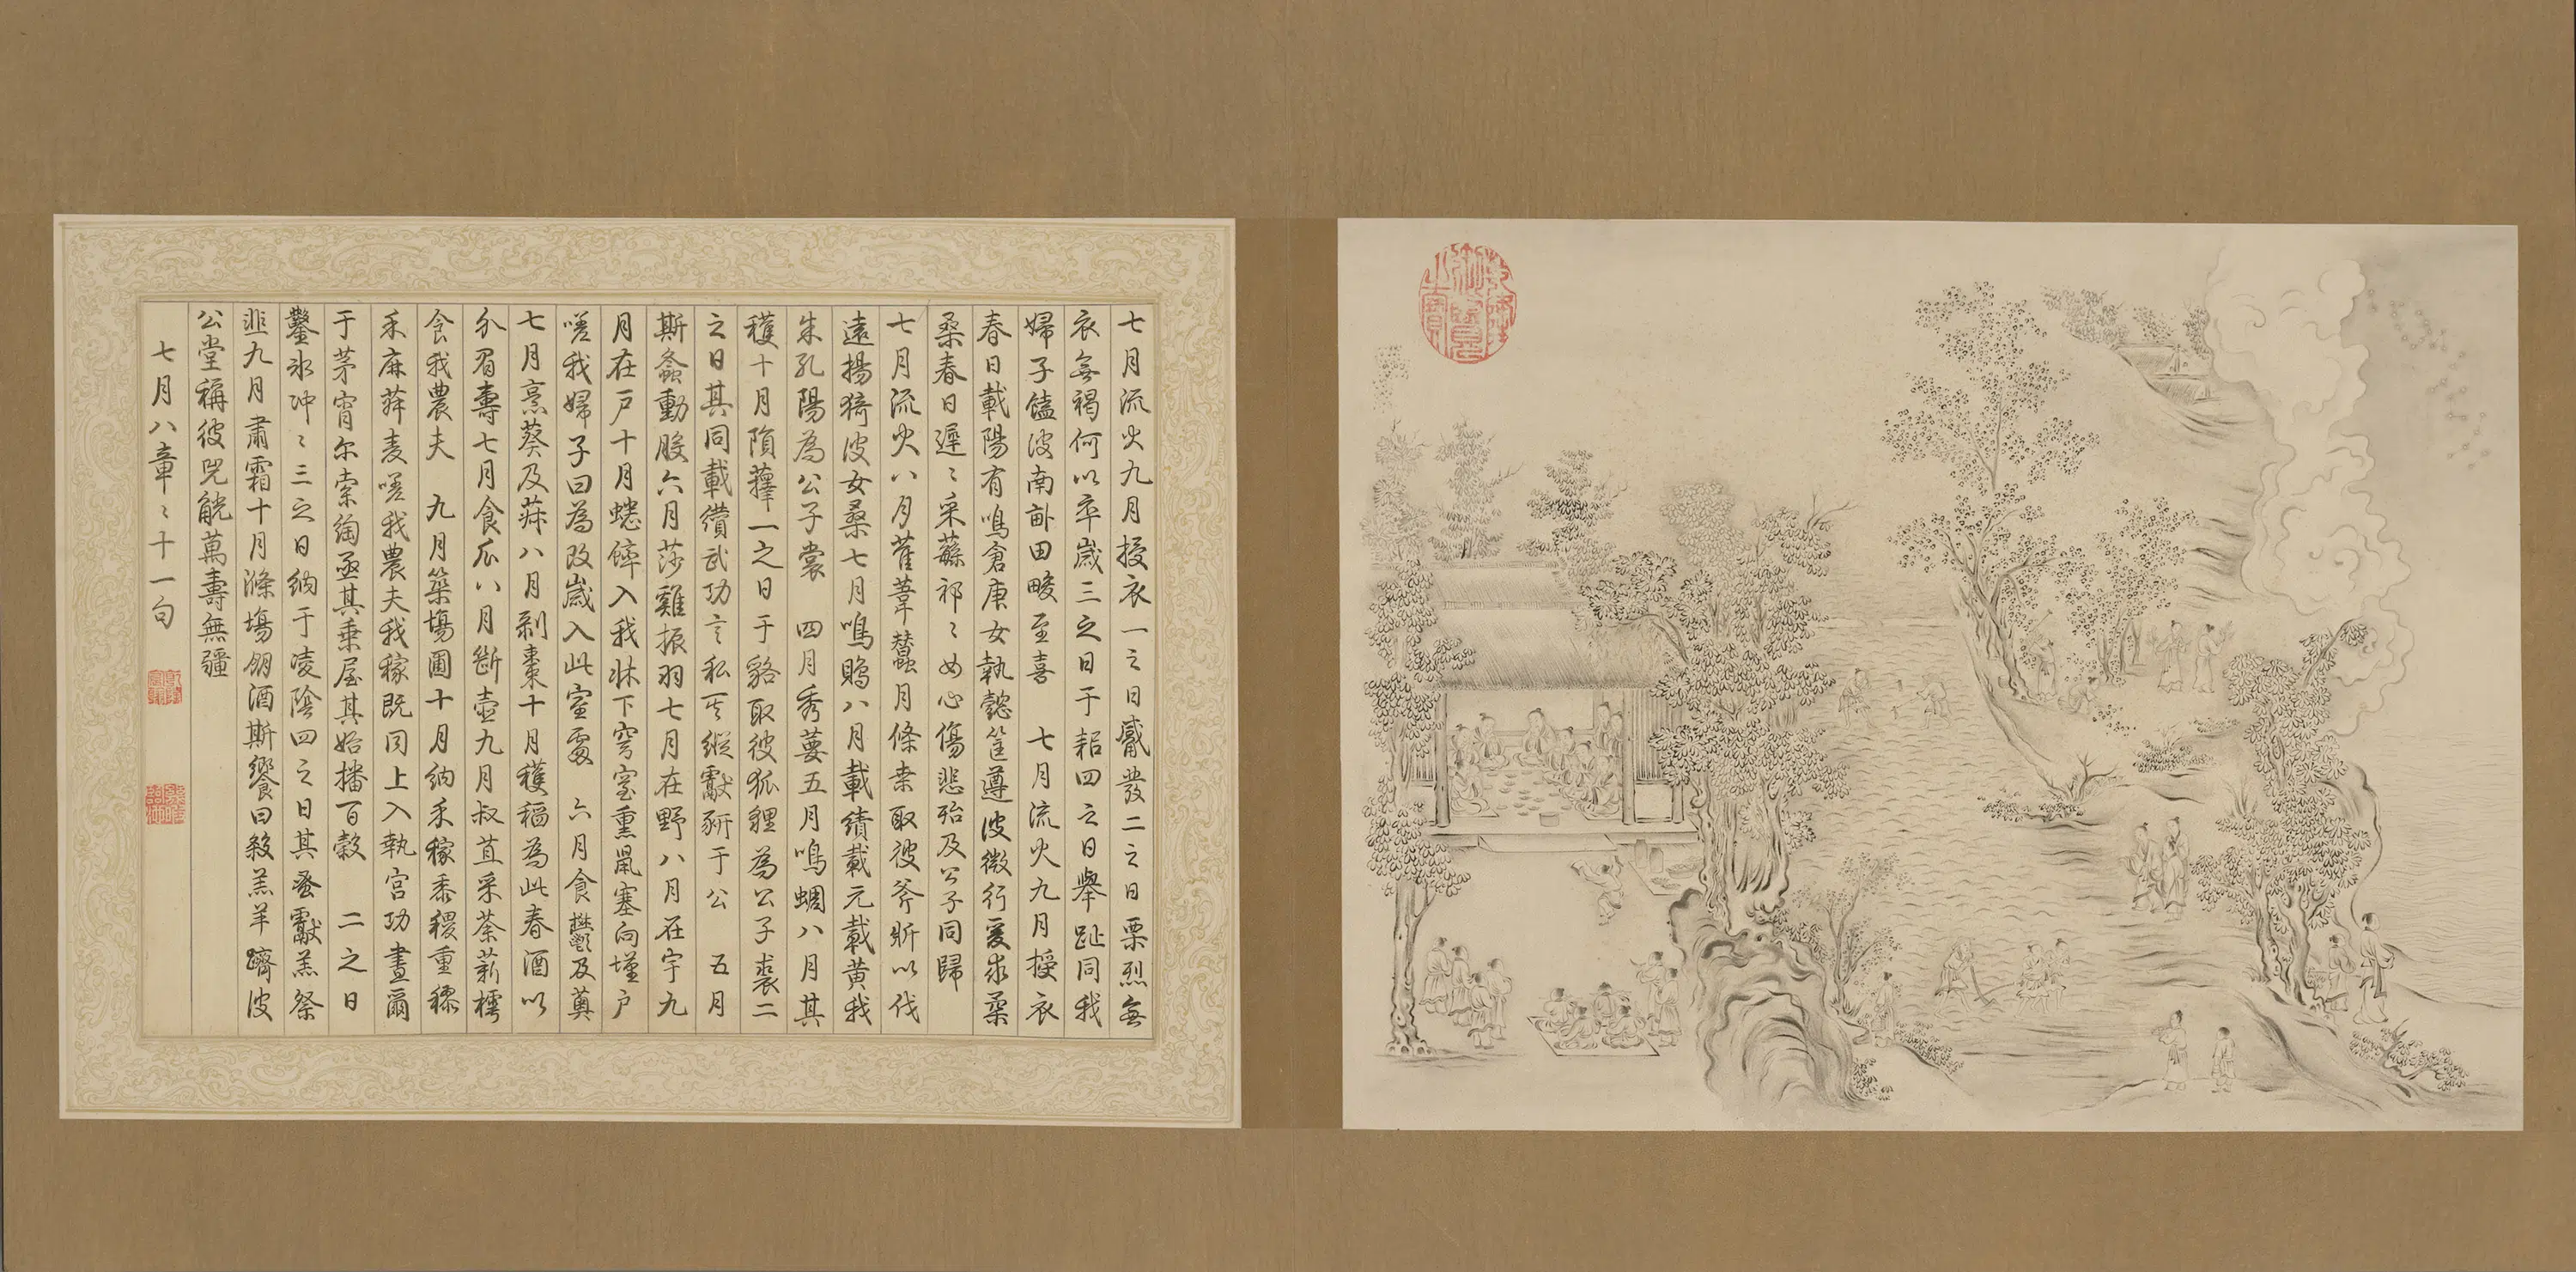 七月流火九月授衣一之日觱發二之日栗烈無
衣無褐何以卒歲三之日于耜四之日舉趾同我
婦子饁彼南畝田畯至喜　七月流火九月授衣
春日載陽有鳴倉庚女執懿筐遵彼微行爰求柔
桑春日遲〻采蘩祁〻女心傷悲殆及公子同歸
七月流火八月萑葦蠶月條桑取彼斧斨以伐
遠揚猗彼女桑七月鳴鵙八月載績載元載黃我
朱孔陽為公子裳　四月秀葽五月鳴蜩八月其
穫十月隕蘀一之日于貉取彼狐狸為公子裘二
之日其同載纘武功言私其豵獻豜于公　五月
斯螽動股六月莎雞振羽七月在野八月在宇九
月在戶十月蟋蟀入我牀下穹窒熏鼠塞向墐戶
嗟我婦子曰為改歲入此室處　六月食鬱及薁
七月烹葵及菽八月剥棗十月穫稻為此春酒以
介眉壽七月食瓜八月斷壺九月叔苴采荼薪樗
食我農夫　九月築場圃十月納禾稼黍稷重穋
禾麻菽麦嗟我農夫我稼既同上入執宫功晝爾
于茅宵尔索綯亟其乗屋其始播百穀　二之日
鑿氷冲〻三之日納于凌陰四之日其蚤獻羔祭
韭九月肅霜十月滌場朋酒斯饗曰殺羔羊躋彼
公堂稱彼兕觥萬壽無疆
七月八章〻十一句
乾隆御覽之寶